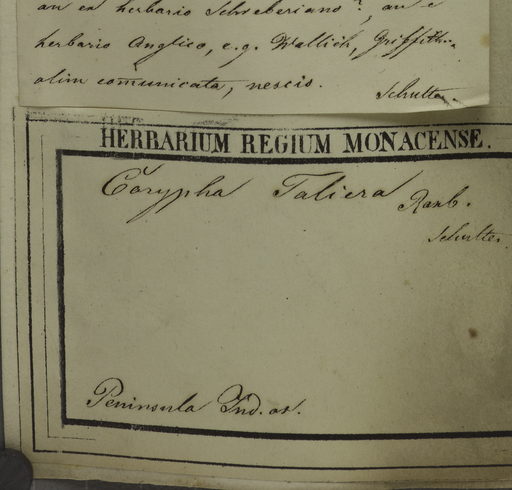 an ex herbario Schreberiano?, an e
herbario Anglico, e.g. Wallich, Griffith.
olim comunicata, nescio.
Schultes
HERBARIUM REGIUM MONACENSE.
Corypha Taliera Roxb.
Schultes.
Peninsula Ind. or.